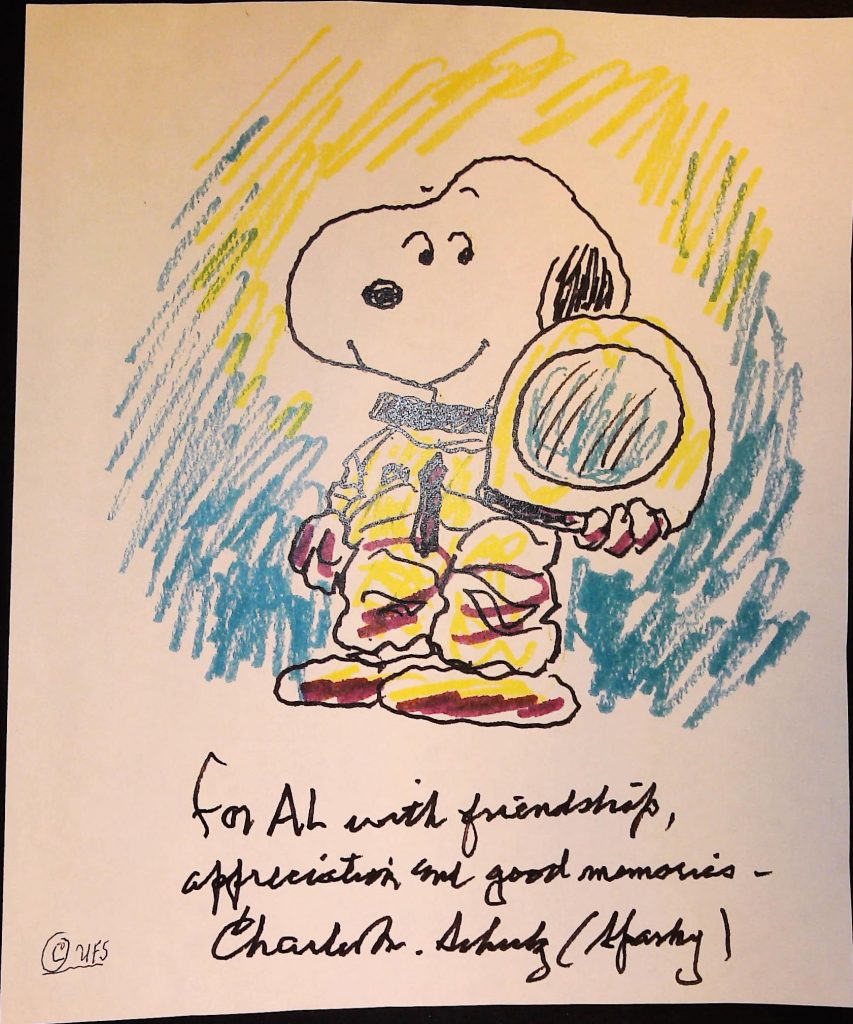 For AL with friendship,
appreciation and good memories -
Charles M. Schulz (Sparky)
© UFS